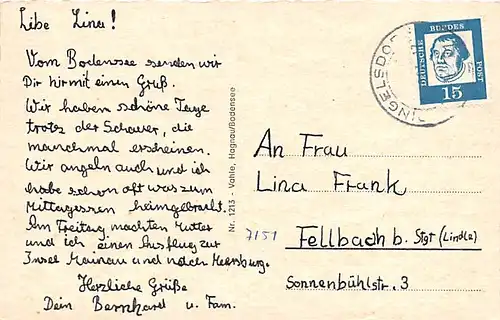 Libe Lina!
Vom Bodensee senden wir
Dir hirmit einen Gruß.
Wir haben schöne Tage
trots der Schauer, die
manchmal erscheinen.
Wir angeln auch und ich
habe schon oft was zum
Mittagessen heimgebracht.
Am Freitag machten Mutter
und ich einen Ausflug zur
Insel Mainau und nach Meersburg.
Herzliche Grüße
Dein Bernhard u. Fam.
Nr. 1213 - Vahle, Hagnau/Bodensee
DEUTSCHE BUNDES POST
15
INGELSDO
An Frau
Lina Frank
7151
Fellbach b. Stgt (Lindle)
Sonnenbühlstr. 3